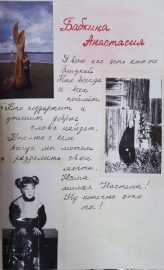 Бабкина
Анастасия
У всех нас есть кто-то
близкий
Кто всегда
и всех
поймёт
Кто поддержит и
утешит добрые
слова найдёт.
Кто-то с кем
всегда мы можем
разделить свои
мечты.
Наша
милая Настена!
Ну конечно это
ты!